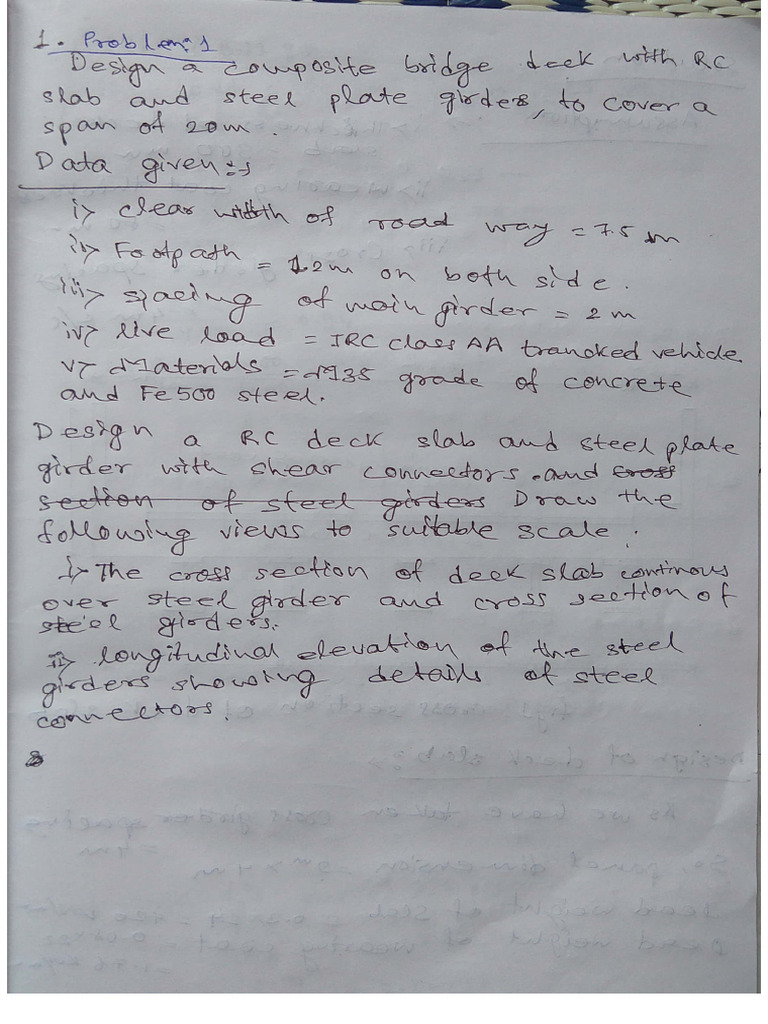 1. Problem:1
Design a composite bridge deck with RC
slab and steel plate girders, to cover a
span of 20m.
Data given:-
i> clear width of road way = 7.5 m
ii> Footpath = 1.2m on both side.
iii> spacing of main girder = 2 m
iv> live load = IRC class AA trancked vehicle
v> Materials = M35 grade of concrete
and Fe500 steel.
Design a RC deck slab and steel plate
girder with shear connectors and cross
section of steel girders Draw the
following views to suitable scale.
i> The cross section of deck slab continous
over steel girder and cross section of
steel girders.
ii> longitudinal elevation of the steel
girders showing details of steel
connectors.